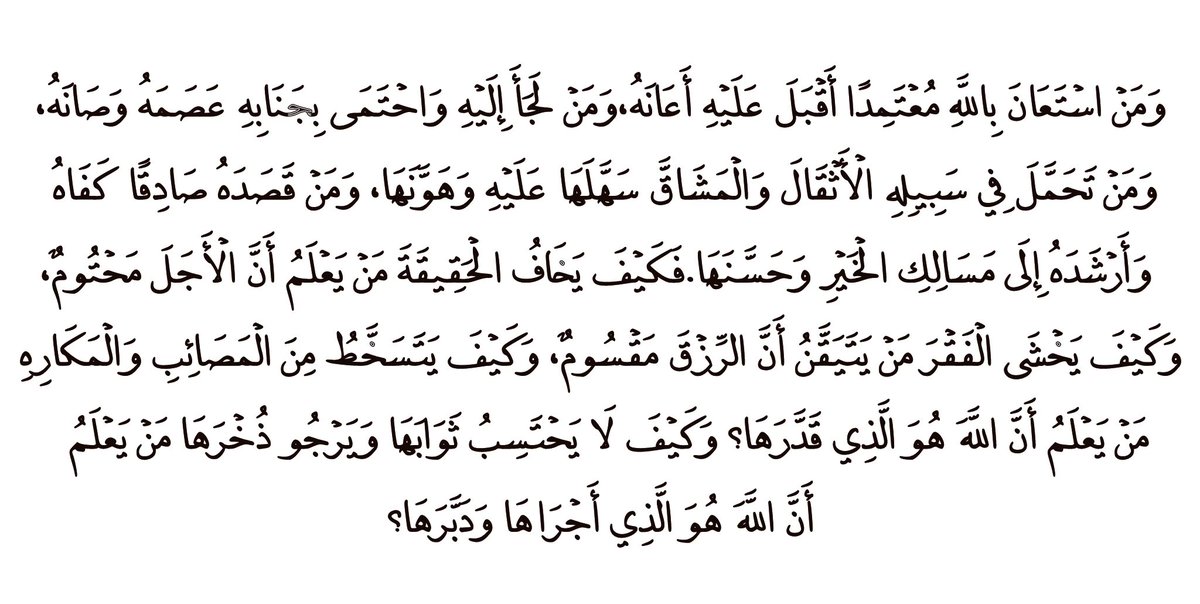 وَمَنْ اسْتَعَانَ بِاللَّهِ مُعْتَمِدًا أَقْبَلَ عَلَيْهِ أَعَانَهُ،وَمَنْ لَجَأَ إِلَيْهِ وَاحْتَمَى بِجَنَابِهِ عَصَمَهُ وَصَانَهُ،
وَمَنْ تَحَمَّلَ فِي سَبِيلِهِ الْأَثْقَالَ وَالْمَشَاقَّ سَهَّلَهَا عَلَيْهِ وَهَوَّنَهَا، وَمَنْ قَصَدَهُ صَادِقًا كَفَاهُ
وَأَرْشَدَهُ إِلَى مَسَالِكِ الْخَيْرِ وَحَسَّنَهَا.فَكَيْفَ يَخَافُ الْحَقِيقَةَ مَنْ يَعْلَمُ أَنَّ الْأَجَلَ مَحْتُومٌ،
وَكَيْفَ يَخْشَى الْفَقْرَ مَنْ يَتَيَقَّنُ أَنَّ الرِّزْقَ مَقْسُومٌ، وَكَيْفَ يَتَسَخَّطُ مِنَ الْمَصَائِبِ وَالْمَكَارِهِ
مَنْ يَعْلَمُ أَنَّ اللَّهَ هُوَ الَّذِي قَدَّرَهَا؟ وَكَيْفَ لَا يَحْتَسِبُ ثَوَابَهَا وَيَرْجُو ذُخْرَهَا مَنْ يَعْلَمُ
أَنَّ اللَّهَ هُوَ الَّذِي أَجْرَاهَا وَدَبَّرَهَا؟